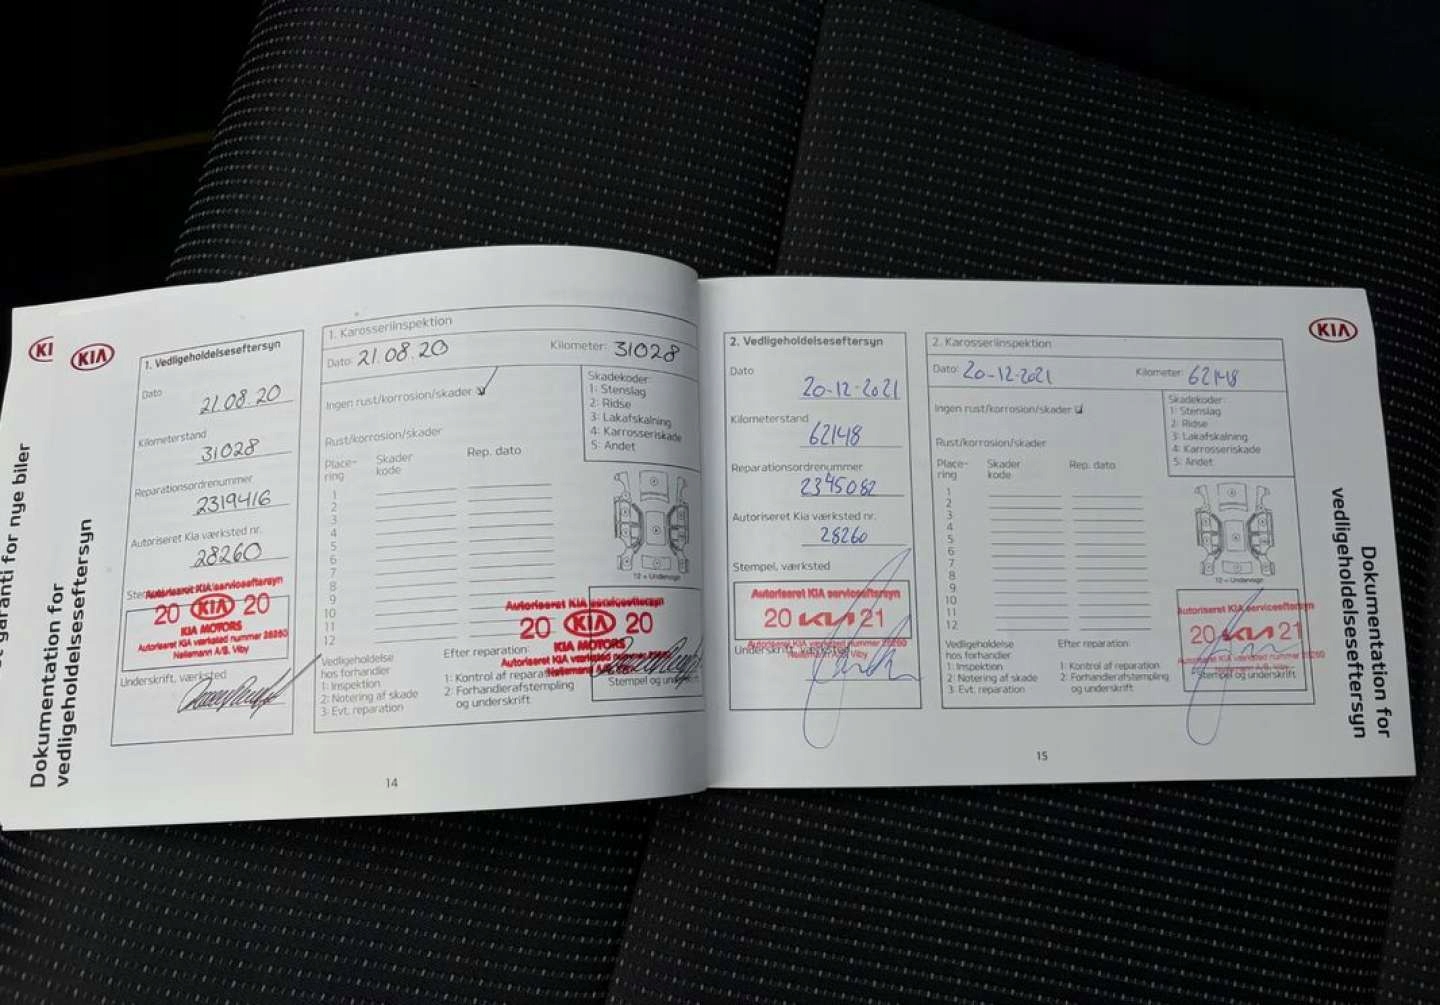 KIA
garanti for nye biler
Dokumentation for
vedligeholdelseseftersyn
KIA
1. Vedligeholdelseseftersyn
Dato
21.08.20
Kilometerstand
31028
Reparationsordrenummer
2319416
Autoriseret Kia værksted nr.
28260
Autoriseret KIA serviceeftersyn
20 KIA 20
KIA MOTORS
Autoriseret KIA værksted nummer 28260
Nellemann A/S. Viby
Underskrift, værksted
1. Karosseriinspektion
Dato: 21.08.20 Kilometer: 31028
Ingen rust/korrosion/skader
Skadekoder:
1: Stenslag
2: Ridse
3: Lakafskalning
4: Karrosseriskade
5: Andet
Rust/korrosion/skader
Place-
ring
Skader
kode
Rep. dato
1
2
3
4
5
6
7
8
9
10
11
12
12 = Undervogn
Autoriseret KIA serviceeftersyn
20 KIA 20
KIA MOTORS
Autoriseret KIA værksted nummer 28260
Nellemann A/S. Viby
Vedligeholdelse
hos forhandler
1: Inspektion
2: Notering af skade
3: Evt. reparation
Efter reparation:
1: Kontrol af reparation
2: Forhandlerafstempling
og underskrift
Stempel og underskrift
14
2. Vedligeholdelseseftersyn
Dato
20-12-2021
Kilometerstand
62148
Reparationsordrenummer
2345082
Autoriseret Kia værksted nr.
28260
Stempel, værksted
Autoriseret KIA serviceeftersyn
20 KIA 21
Autoriseret KIA værksted nummer 28260
Nellemann A/S. Viby
Underskrift, værksted
2. Karosseriinspektion
Dato: 20-12-2021 Kilometer: 62148
Ingen rust/korrosion/skader
Skadekoder:
1: Stenslag
2: Ridse
3: Lakafskalning
4: Karrosseriskade
5: Andet
Rust/korrosion/skader
Place-
ring
Skader
kode
Rep. dato
1
2
3
4
5
6
7
8
9
10
11
12
12 = Undervogn
Autoriseret KIA serviceeftersyn
20 KIA 21
Autoriseret KIA værksted nummer 28260
Nellemann A/S. Viby
Vedligeholdelse
hos forhandler
1: Inspektion
2: Notering af skade
3: Evt. reparation
Efter reparation:
1: Kontrol af reparation
2: Forhandlerafstempling
og underskrift
Stempel og underskrift
15
KIA
Dokumentation for
vedligeholdelseseftersyn